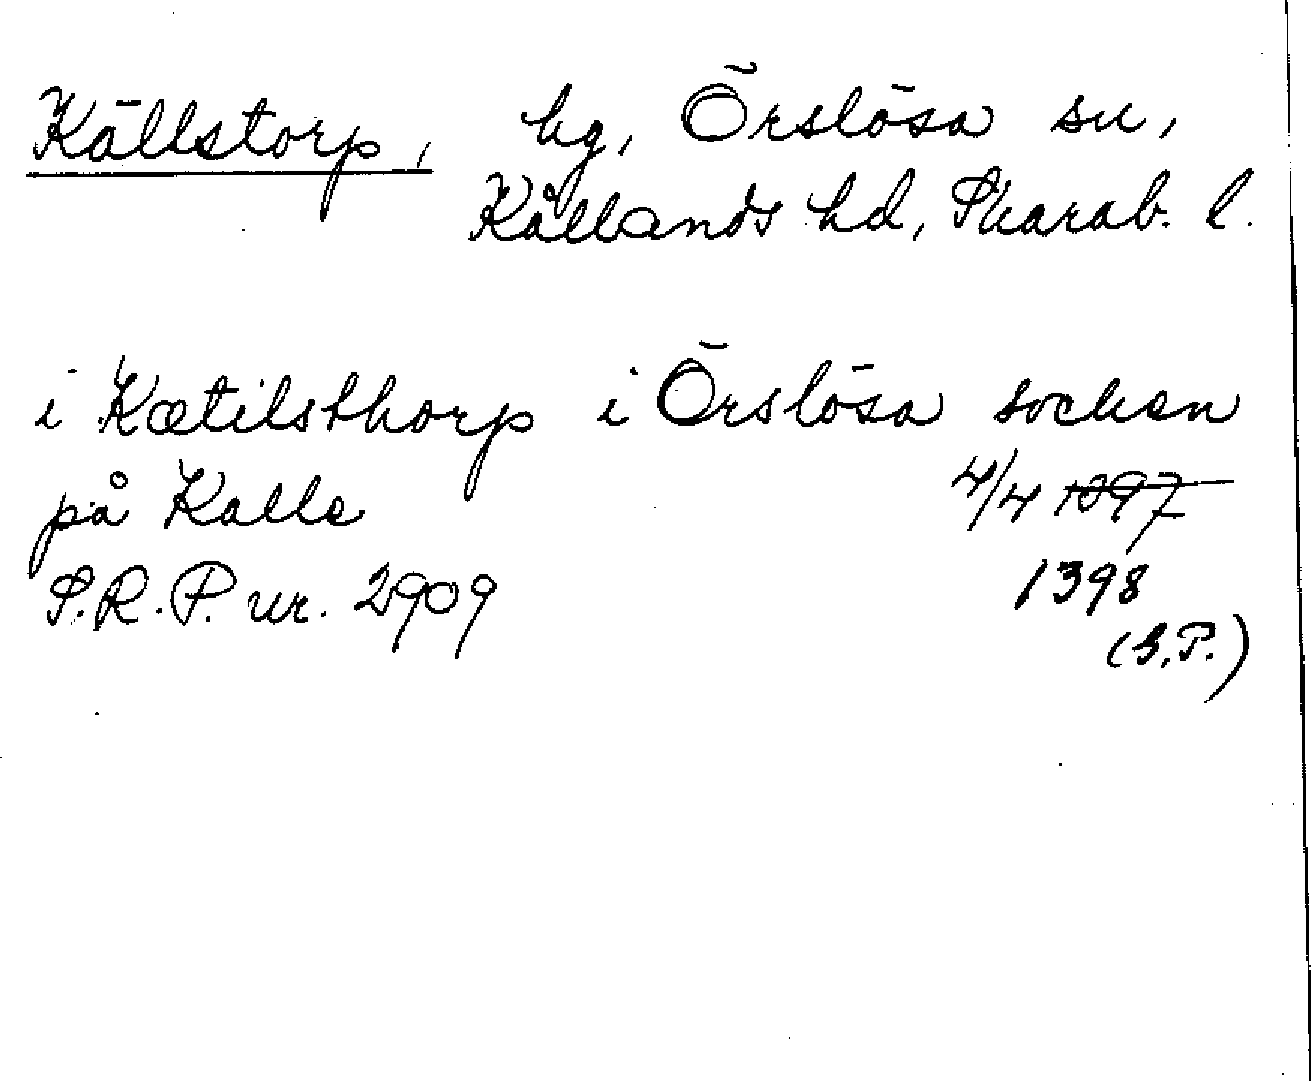 Källstorp, hg, Örslösa sn,
Kållands hd, Skarab. l.
i Kætilsthorp i Örslösa socken
på Kalle 4/4 1397
S.R.P. nr. 2909 1398
(S.P.)